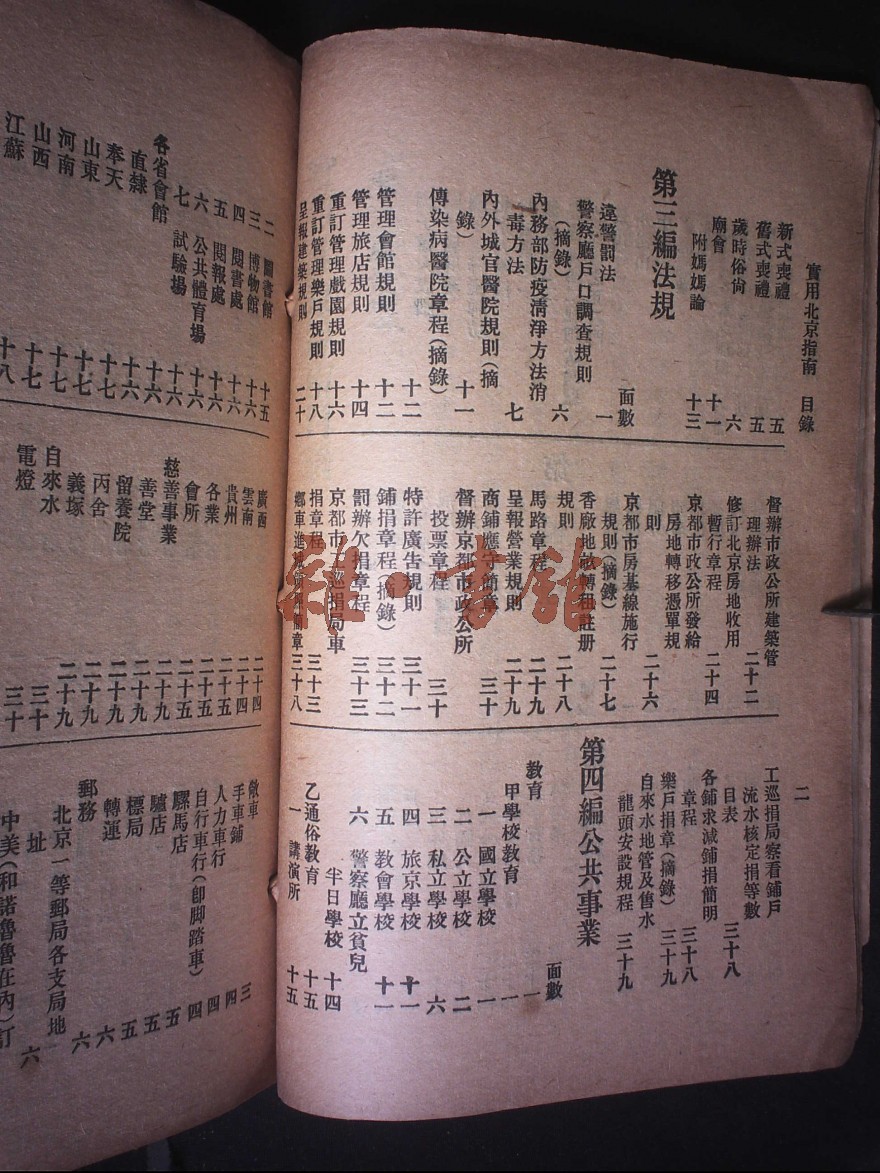 實用北京指南　目錄
二
新式喪禮　五
舊式喪禮　五
歲時俗尚　六
廟會　十一
附媽媽論　十三
第三編法規
面數
違警罰法　一
警察廳戶口調查規則
(摘錄)　六
內務部防疫清淨方法消
毒方法　七
內外城官醫院規則(摘
錄)　十一
傳染病醫院章程(摘錄)　十二
管理會館規則　十二
管理旅店規則　十四
重訂管理戲園規則　十六
重訂管理樂戶規則　十八
呈報建築規則　二十
督辦市政公所建築管
理辦法　二十二
修訂北京房地收用
暫行章程　二十四
京都市政公所發給
房地轉移憑單規
則　二十六
京都市房基線施行
規則(摘錄)　二十七
香廠地畝轉租註册
規則　二十八
馬路章程　二十九
呈報營業規則　二十九
商鋪應守簡章　三十
督辦京都市政公所
投票章程　三十
特許廣告規則　三十一
鋪捐章程(摘錄)　三十二
罰辦欠捐章程　三十三
京都市工巡捐局車
捐章程　三十三
鄉車進城　簡章　三十八
工巡捐局察看鋪戶
流水核定捐等數
目表　三十八
各鋪求減鋪捐簡明
章程　三十八
樂戶捐章(摘錄)　三十九
自來水地管及售水
龍頭安設規程　三十九
第四編公共事業
面數
教育　一
甲學校教育　一
一　國立學校　一
二　公立學校　二
三　私立學校　六
四　旅京學校　十一
五　教會學校　十一
六　警察廳立貧兒
半日學校　十四
乙通俗教育　十五
一　講演所　十五
二　圖書館　十五
三　博物館　十六
四　閱書處　十六
五　閱報處　十六
六　公共體育場　十六
七　試驗場　十六
各省會館　十六
直隸　十六
奉天　十七
山東　十七
河南　十七
山西　十七
江蘇　十八
廣西　二十四
雲南　二十四
貴州　二十五
各業　二十五
會所　二十五
慈善事業　二十九
善堂　二十九
留養院　二十九
丙舍　二十九
義塚　二十九
自來水　三十
電燈　三十
敞車　三
手車鋪　四
人力車行　四
自行車行(即脚踏車)　四
騾馬店　五
驢店　五
標局　五
轉運　六
郵務　六
北京一等郵局各支局地
址　六
中美(和諾魯魯在內)訂